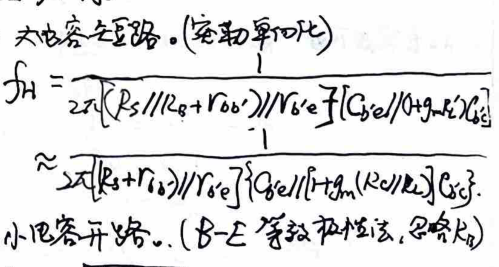 大电容全短路。(密勒单向化)
f_H = 1 / 2π[(R_S//R_B+r_bb')//r_b'e][C_b'e//(1+g_mR_L')C_b'c]
≈ 1 / 2π[(R_S+r_bb')//r_b'e]{C_b'e//[1+g_m(R_C//R_L)]C_b'c}.
小电容开路。(B-E 等效极性法,忽略R_B)